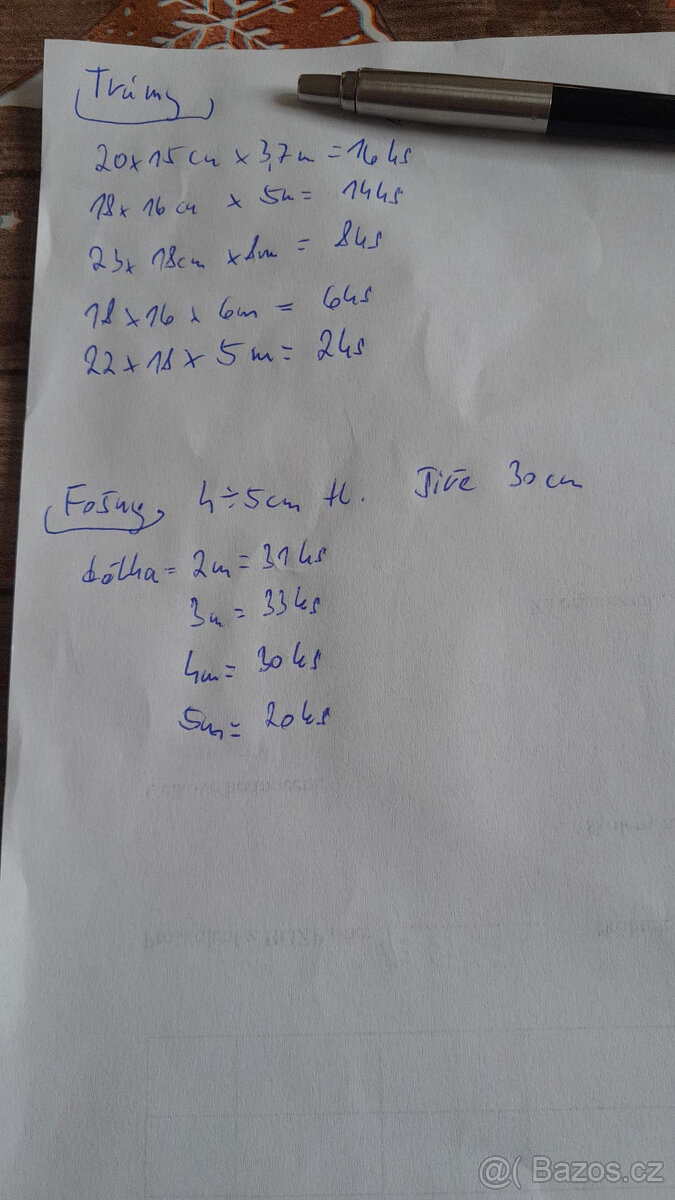 Trámy
20x15cm x 3,7m = 16ks
18x16cm x 5m = 14ks
23x18cm x 8m = 8ks
18x16 x 6m = 6ks
22x18x 5m = 2ks
Fošny 4÷5cm tl. šíře 30cm
délka = 2m = 31ks
3m = 33ks
4m = 30ks
5m = 20ks
Bazos.cz